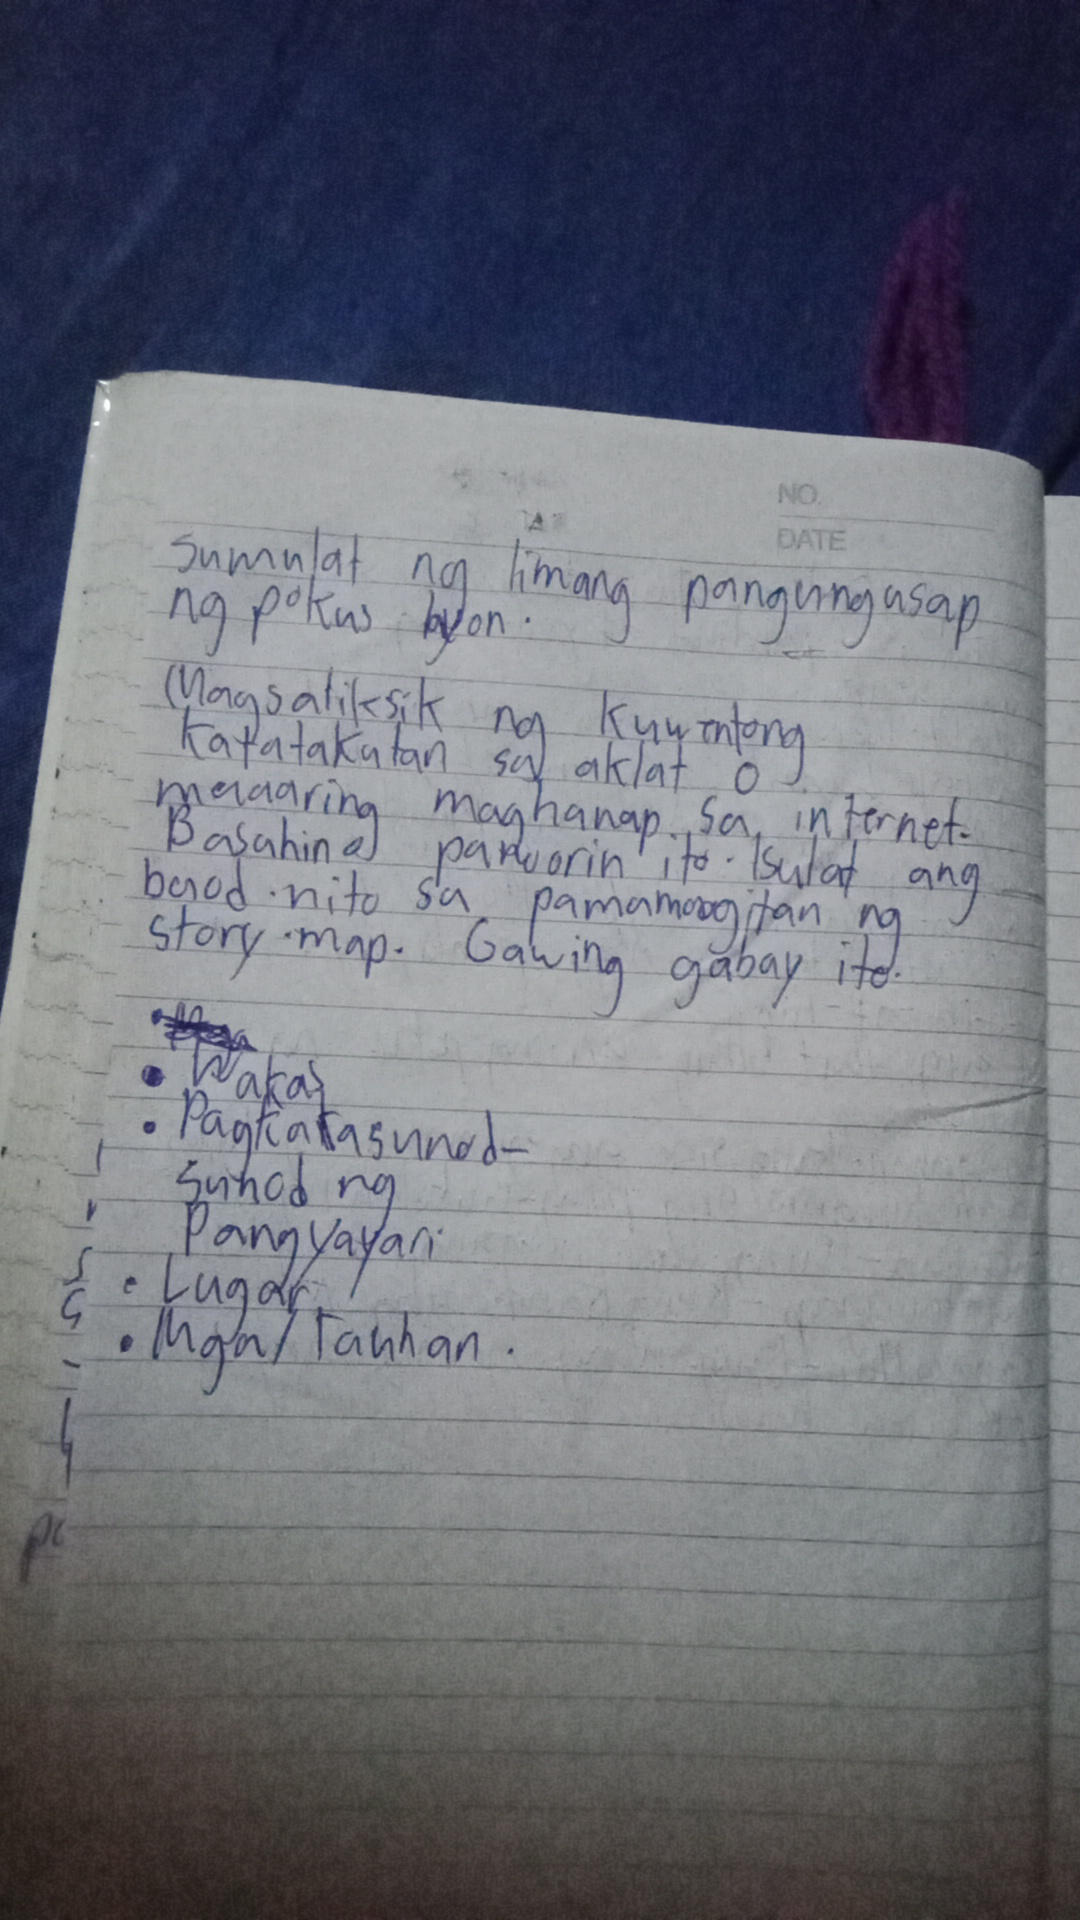 NO.
DATE
Sumulat ng limang pangungusap
ng pokus layon.
Magsaliksik ng kuwentong
katatakutan sa aklat o
maaaring maghanap sa internet.
Basahin at ito. Isulat ang
nito sa pamamagitan ng
story map. Gawing gabay ito.
• Wakas
• Pagkakasunod-
sunod ng
Pangyayari
• Lugar
• Mga Tauhan.